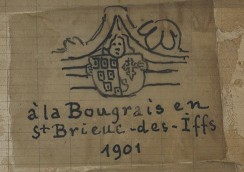 à la Bougrais en
St Brieuc-des-Iffs
1901